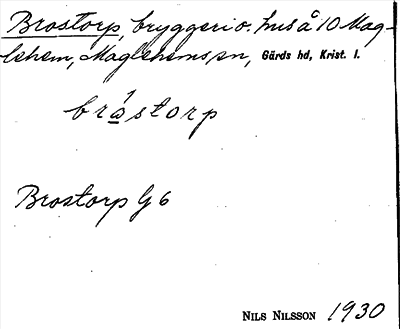 Brostorp, bryggeri o. hus å 10 Mag-
lehem, Maglehems sn, Gärds hd, Krist. l.
brástorp
Brostorp G 6
NILS NILSSON 1930